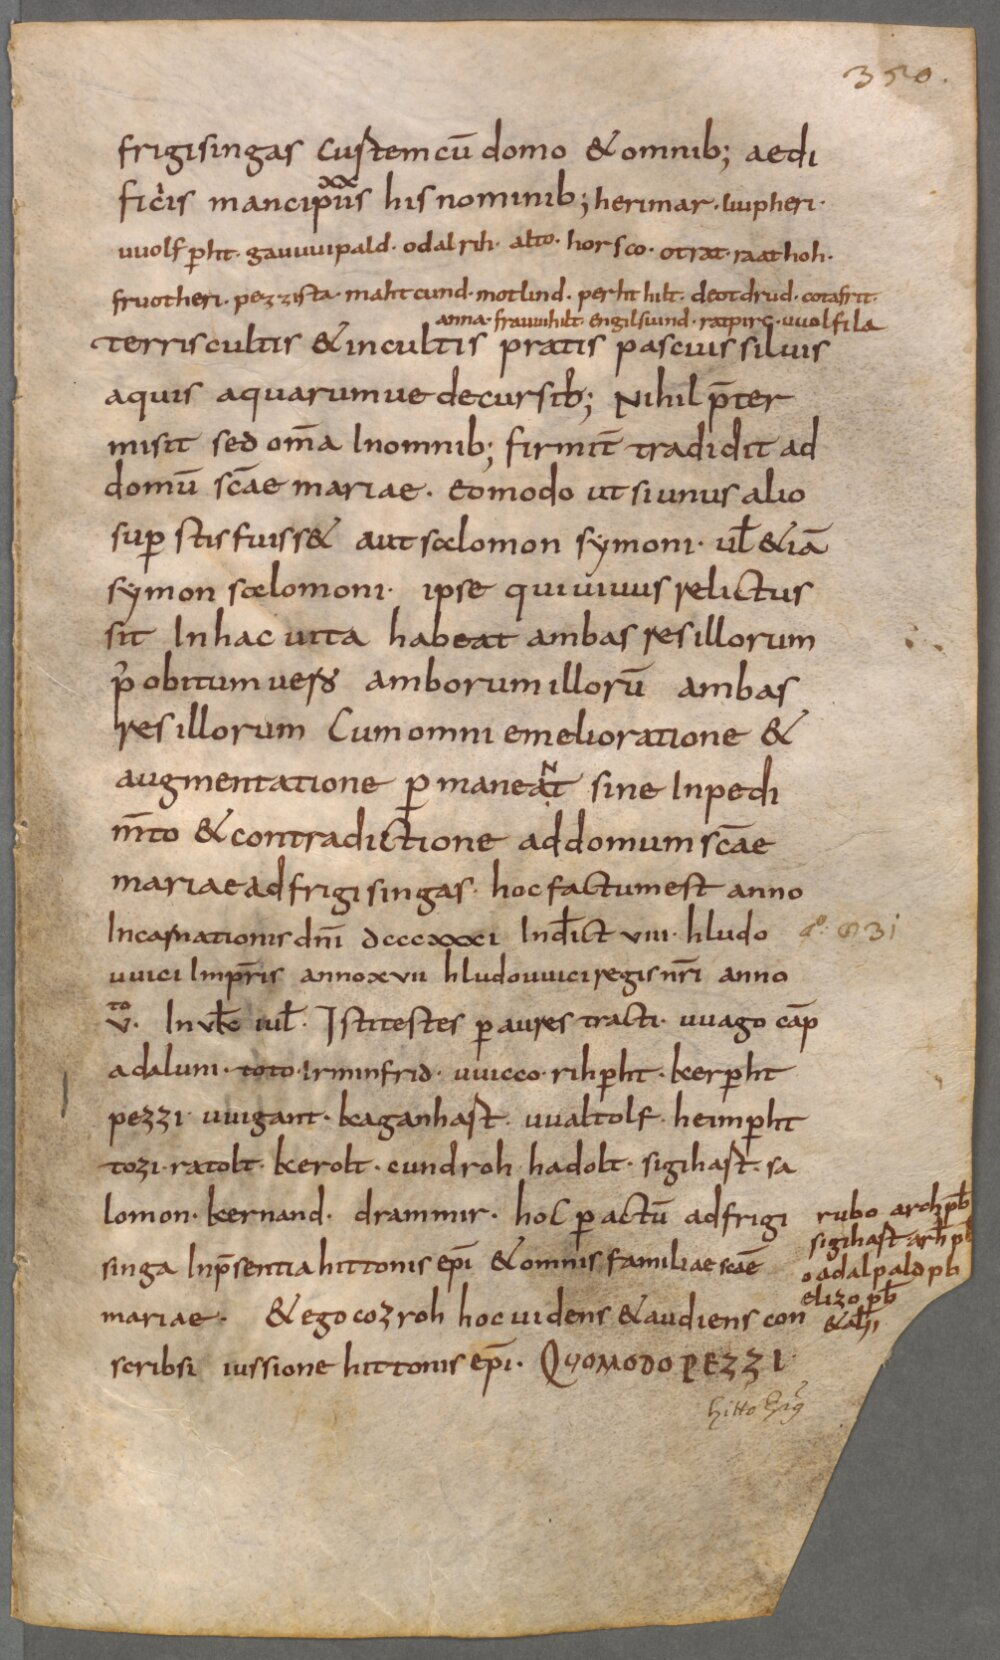 350.
frigisingas Custem cū domo & omnib; aedi
ficiis mancipiis xx his nominib; herimar · liupheri ·
uuolfp̄ht · gauuuipald · odalrih · alto · horsco · otrat · raathoh ·
fruotheri · pezzista · mahtcund · motlind · perhthilt · deotdrud · cotafrit ·
anna · frauuihilt · engilsuind · ratpirc · uuolfila
terris cultis & incultis pratis pascuis siluis
aquis aquarumue decursib; Nihil p̄ter
misit sed om̄a In omnib; firmit̄ tradidit ad
domū sc̄ae mariae · eo modo ut si unus alio
sup̱stis fuiss& aut sælomon symoni · ul̄ &iā
symon sælomoni · ipse qui uiuus relictus
sit In hac uita habeat ambas res illorum
p̓ obitum uero amborum illorū ambas
res illorum Cum omni emelioratione &
augmentatione p̱maneaNt sine Inpedi
m̄to & contradictione ad domum sc̄ae
mariae ad frigisingas · hoc factum est anno
Incarnationis dn̄i dcccxxxi Ind̄ict viiii · hludo
uuici Imp̄ris anno xvii hludouuici regis nr̄i anno
a°: 831
v·to In vk̄l iul̄ · Isti testes p̱ aures tracti · uuago cāp
adaluni · toto · Irminfrid · uuicco · rihp̱ht · kerp̱ht
pezzi · uuigant · kaganhast · uualtolf · heimp̱ht
tozi · ratolt · kerolt · cundroh · hadolt · sigihast · sa
lomon · kernand · drammir · hoC p̱actū ad frigi
singa In p̄sentia hittonis ep̄i & omnis familiae scāe
mariae · & ego cozroh hoc uidens & audiens con
scribsi iussione hittonis ep̄i · QUOMODO PEZZI
rubo archip̄b
sigihast arh p̄b
oadalpald pb
elizo p̄b
& alii
hitto Epis